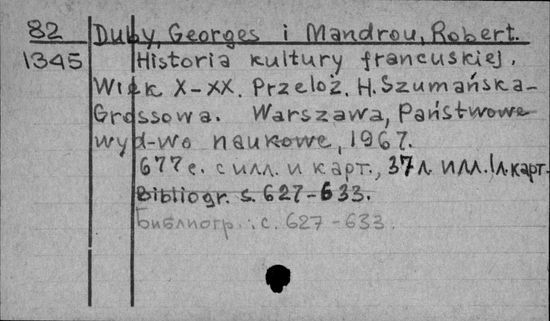 82 Duby, Georges i Mandrou, Robert.
1345 Historia kultury francuskiej.
Wiek X-XX. Przełoż. H. Szumańska-
Grossowa. Warszawa, Państwowe
wyd-wo naukowe, 1967.
677 с. с илл. и карт., 37 л. илл. 1 л. карт.
Bibliogr. s. 627-633.
Библиогр.: с. 627-633.